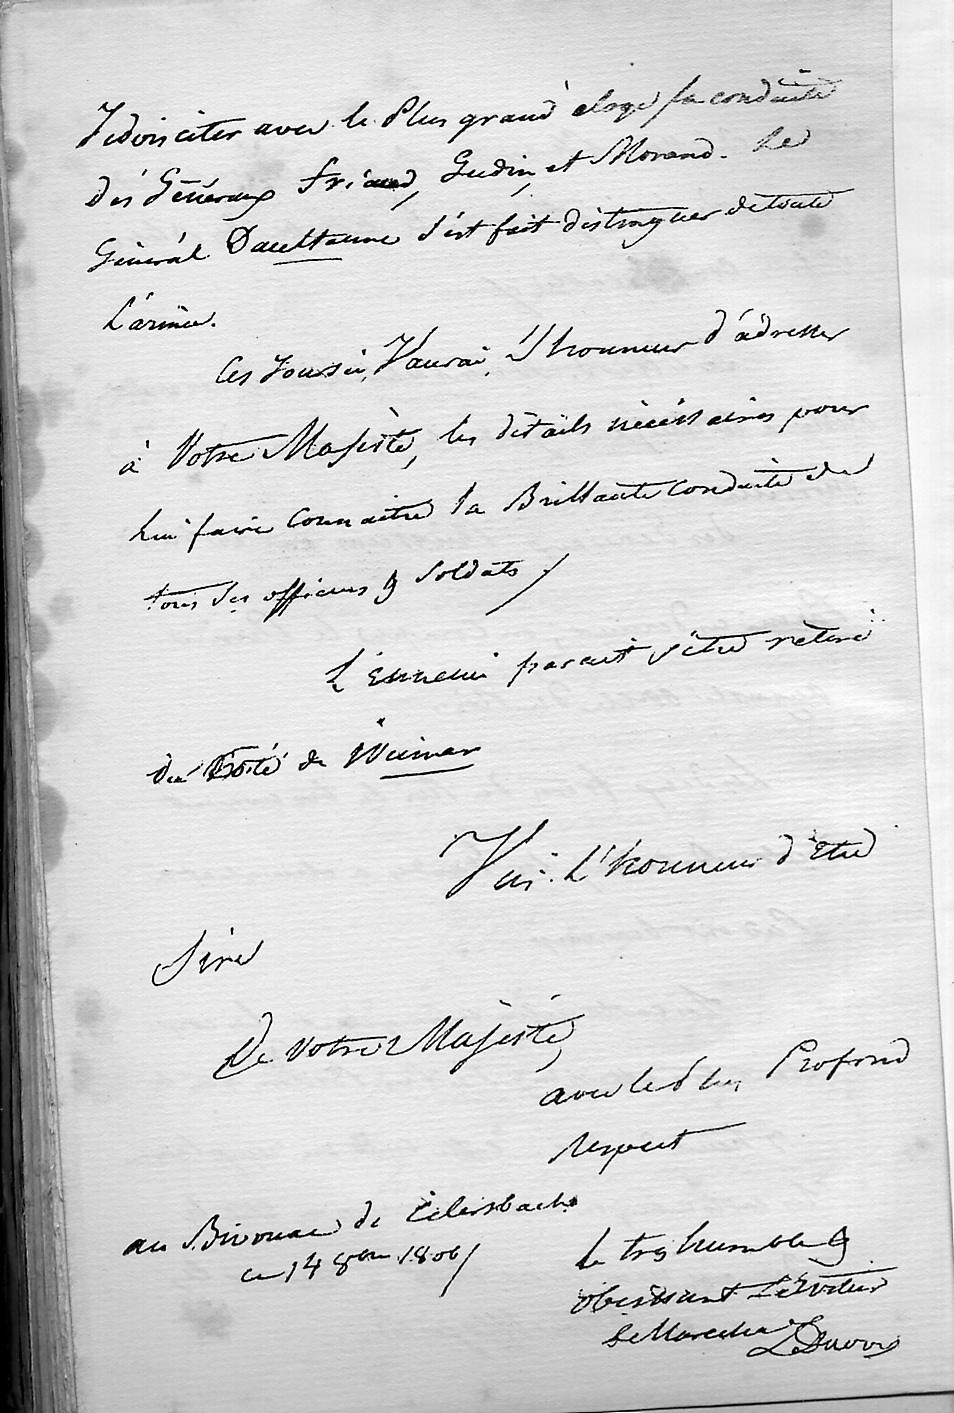 Je dois citer avec le Plus grand éloge la conduite
des Généraux friand, Gudin, et Morand. Le
Général Daultanne s'est fait distinguer de toute
L'armée.
Ces Jours ci, J'aurai, L'honneur d'adresser
à Votre Majesté, les détails nécéssaires pour
Lui faire connaitre la Brillante conduite de
tous ses officiers & Soldats /
L'Ennemi parait s'être retiré
du Côté de Weimar
J'ai L'honneur d'Etre
Sire
De Votre Majesté,
avec le plus Profond
respect
au Bivouac de Eckersberg
ce 14 8bre 1806 /
Le très humble &
obeissant Serviteur
Le Marechal
L. Davout